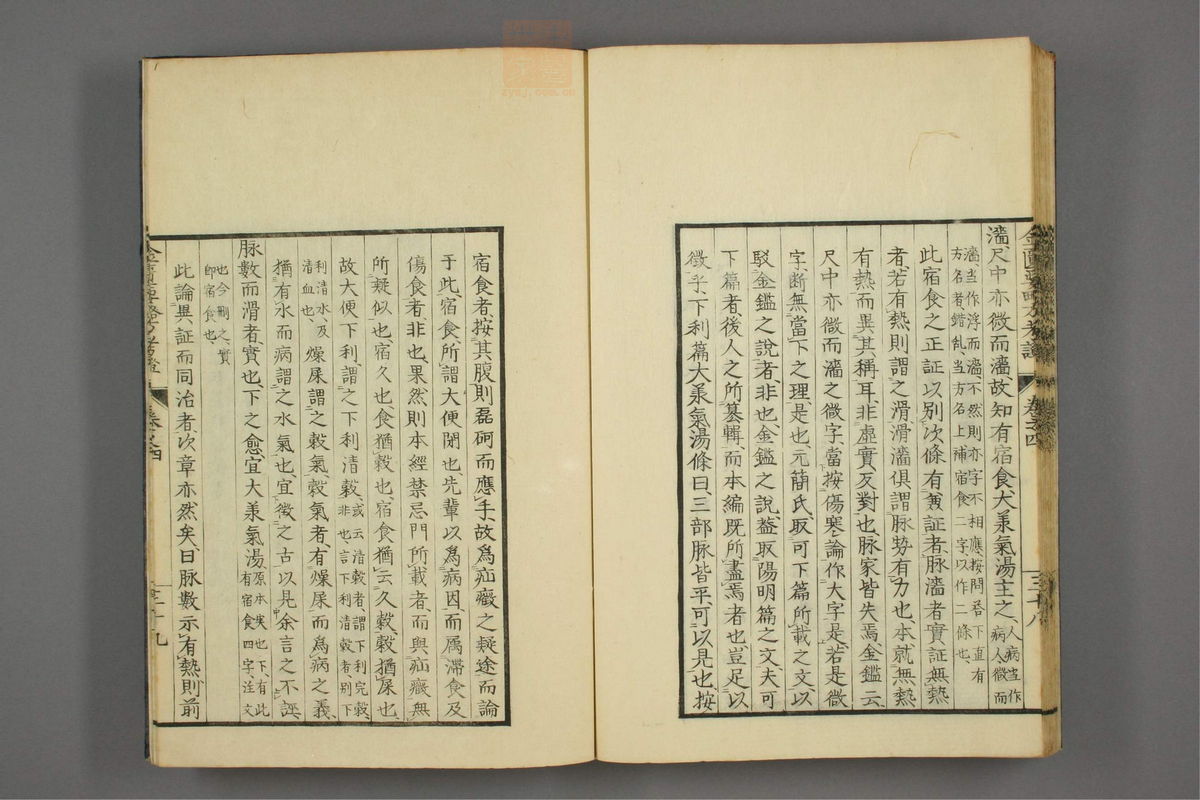 金匱要略方考證 卷之四 三十八
濇尺中亦微而濇故知有宿食大承氣湯主之人病当作病人微而
濇当作浮而濇不然則亦字不相應按問答下直有
方名者錯乱当方名上補宿食二字以作二條也
此宿食之正証以別次條有異証者脉濇者實証無熱
者若有熱則謂之滑滑濇俱謂脉勢有力也本就無熱
有熱而異其稱耳非虛實反對也脉家皆失焉金鑑云
尺中亦微而濇之微字當按傷寒論作大字是若是微
字断無當下之理是也元簡氏取可下篇所載之文以
駁金鑑之說者非也金鑑之說蓋取陽明篇之文夫可
下篇者後人之所纂輯而本編既所盡焉者也豈足以
徵乎下利篇大承氣湯條曰三部脉皆平可以見也按
宿食者按其腹則磊砢而應手故爲疝癥之疑途而論
于此宿食所謂大便閉也先輩以爲病因而属滞食及
傷食者非也果然則本經禁忌門所載者而與疝癥無
所疑似也宿久也食猶穀也宿食猶云久穀穀猶屎也
故大便下利謂之下利清穀或云清穀者謂下利完穀非也言下利清穀者別下
利清水及清血也燥屎謂之穀氣穀氣者有燥屎而爲病之義
猶有水而病謂之水氣也宜徵之古以見余言之不誣
脉數而滑者實也下之愈宜大承氣湯原本矣也下有此有宿食四字注文
也今刪之實即宿食也
此論異証而同治者次章亦然矣曰脉數示有熱則前
卷之四 三十九
zysj.com.cn